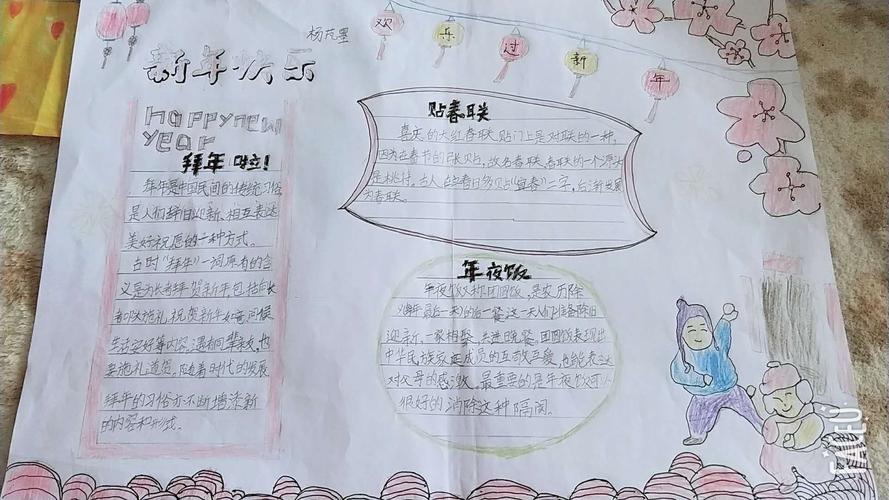 杨芃墨
欢乐过新年
新年快乐
Happy new
year
拜年啦!
拜年是中国民间的传统习俗
是人们辞旧迎新、相互表达
美好祝愿的一种方式。
古时"拜年"一词原有的含
义是为长者拜贺新年包括向长
者叩头施礼祝贺新年如意问候
生活安好等内容。遇有同辈亲友,也
要施礼道贺。随着时代的发展
拜年的习俗亦不断增添新
的内容和形式。
贴春联
喜庆的大红春联贴门上是对联的一种,
因为在春节的时候贴,故名春联。春联的一个源头
是桃符。古人在立春日多贴"宜春"二字,后渐发展
为春联。
年夜饭
年夜饭又称团圆饭,是农历除
夕(每年最后一天)的后一餐 这一天人们准备除旧
迎新,一家相聚,共进晚餐。团圆饭表现出
中华民族家庭成员的互敬互爱,也能表达
对父母的感激。最重要的是年夜饭可以
很好的消除这种隔阂。
FAEU